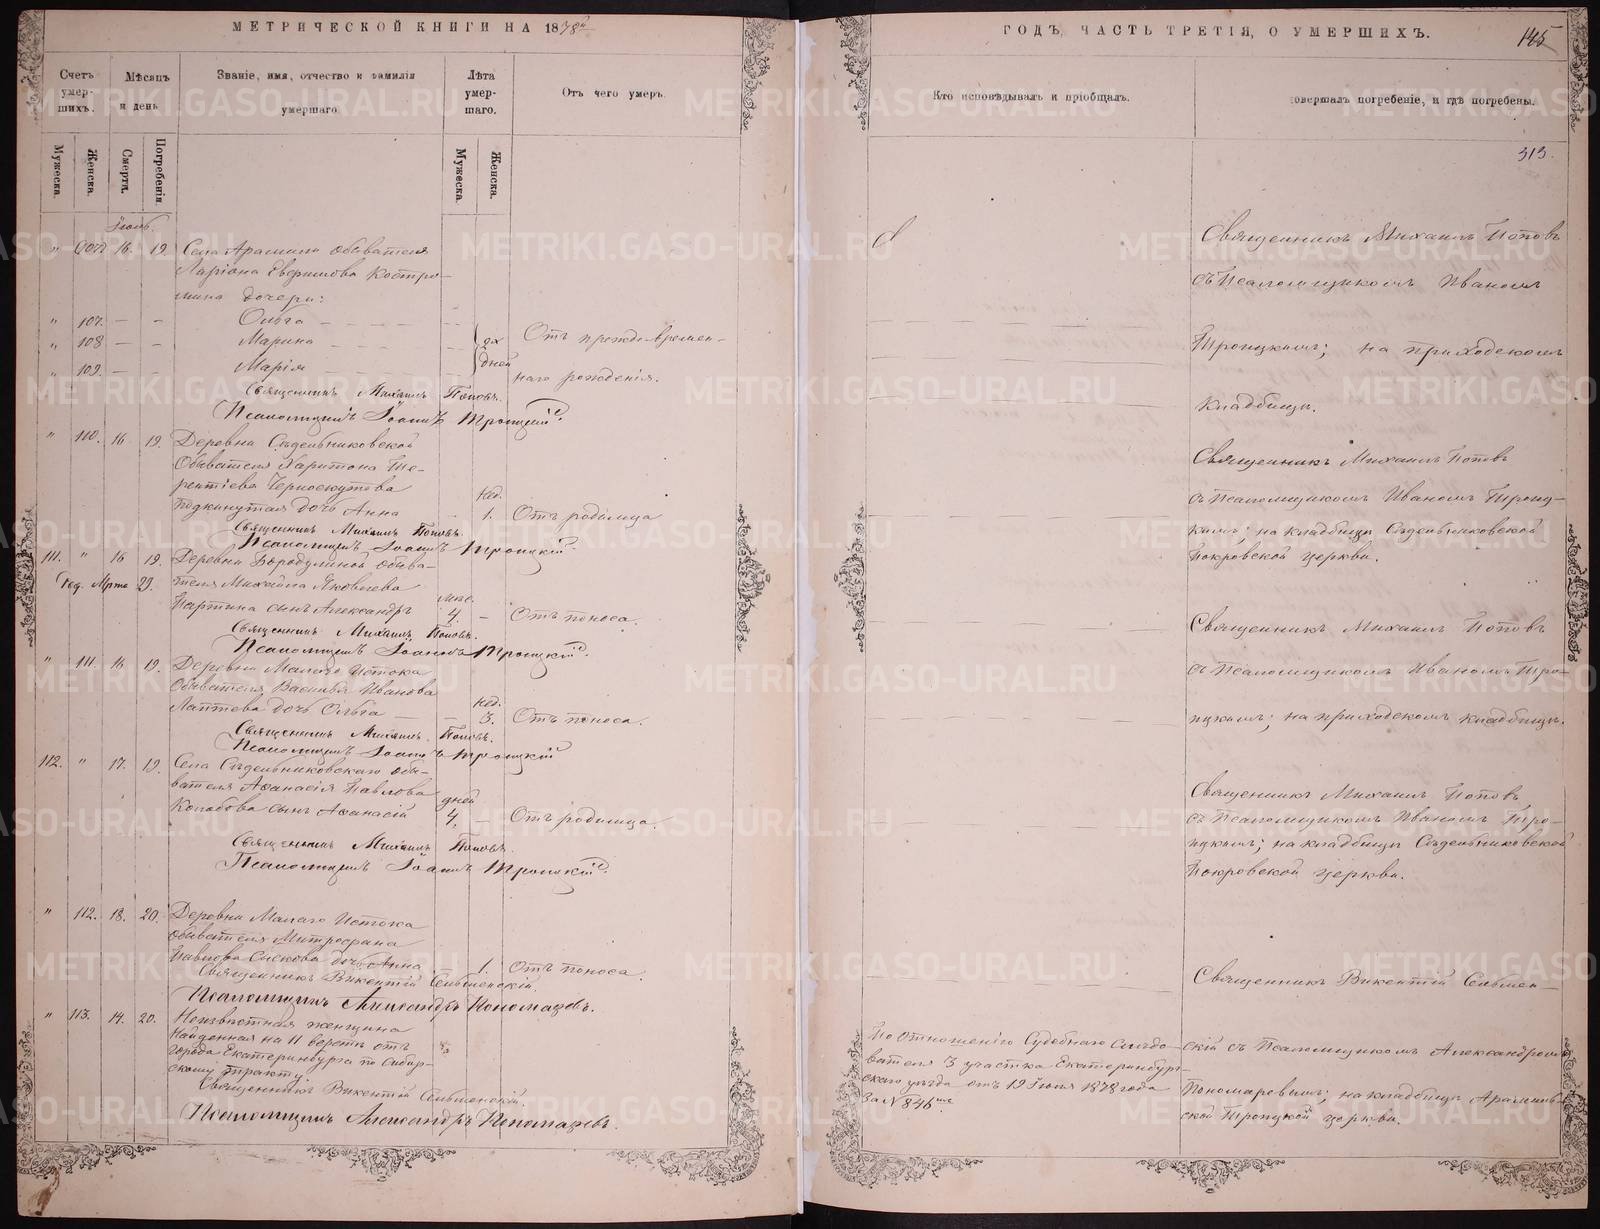 МЕТРИЧЕСКОЙ КНИГИ НА 1878й
Счетъ умер-шихъ.
Мѣсяцъ и день
Званіе, имя, отчество и фамилія умершаго
Лѣта умер-шаго.
Отъ чего умеръ.
Мужеска.
Женска.
Смерти.
Погребенія.
Мужеска.
Женска.
Іюль.
16 19 Села Арамили обывателя
Ларіона Евфимова Костро-
мина дочери:
" 107. — — Ольга
" 108 — — Марина
" 109. — — Марія
2хъ дней
Отъ преждевремен-
наго рожденія.
Священникъ Михаилъ Поповъ.
Псаломщикъ Іоаннъ Троицкій
" 110. 16 19. Деревни Сѣдельниковской
Обывателя Харитона Те-
рентіева Черноскутова
подкинутая дочь Анна
нед. 1. Отъ родимца
Священникъ Михаилъ Поповъ.
Псаломщикъ Іоаннъ Троицкій
111. " 16 19. Деревни Бородулиной обыва-
теля Михаила Яковлева
Партина сынъ Александръ
мѣс. 4. — Отъ поноса.
Священникъ Михаилъ Поповъ.
Псаломщикъ Іоаннъ Троицкій
" 111. 16 19. Деревни Малаго Истока
Обывателя Василья Иванова
Лаптева дочь Ольга
нед. 3. Отъ поноса.
Священникъ Михаилъ Поповъ.
Псаломщикъ Іоаннъ Троицкій
112. " 17. 19. Села Сѣдельниковскаго обы-
вателя Аѳанасія Павлова
Колабова сынъ Аѳанасій
дней 4. — Отъ родимца.
Священникъ Михаилъ Поповъ.
Псаломщикъ Іоаннъ Троицкій
" 112. 18. 20. Деревни Малаго Истока
обывателя Митрофана
Павлова дочь Анна
1. Отъ поноса.
Священникъ Викентій Сельменскій.
Псаломщикъ Александръ Пономаревъ.
" 113. 14. 20. Неизвѣстная женщина
Найденная на 11 верстѣ отъ
города Екатеринбурга по Сибир-
скому тракту
Священникъ Викентій Сельменскій.
Псаломщикъ Александръ Пономаревъ.
ГОДЪ, ЧАСТЬ ТРЕТІЯ, О УМЕРШИХЪ.
145
Кто исповѣдывалъ и пріобщалъ.
совершалъ погребеніе, и гдѣ погребены.
313.
Священникъ Михаилъ Поповъ
съ Псаломщикомъ Иваномъ
Троицкимъ; на приходскомъ
кладбищѣ.
Священникъ Михаилъ Поповъ
съ Псаломщикомъ Иваномъ Троиц-
кимъ; на кладбищѣ Сѣдельниковской
Покровской церкви.
Священникъ Михаилъ Поповъ
съ Псаломщикомъ Иваномъ Тро-
ицкимъ; на приходскомъ кладбищѣ.
Священникъ Михаилъ Поповъ
съ Псаломщикомъ Иваномъ Тро-
ицкимъ; на кладбищѣ Сѣдельниковской
Покровской церкви.
Священникъ Викентій Сельмен-
скій съ Псаломщикомъ Александромъ
Пономаревымъ; на кладбищѣ Арамиль-
ской Троицкой церкви.
По Отношенію Судебнаго Слѣдо-
вателя 3 участка Екатеринбург-
скаго уѣзда отъ 19 Іюля 1878 года
За № 846
METRIKI.GASO-URAL.RU